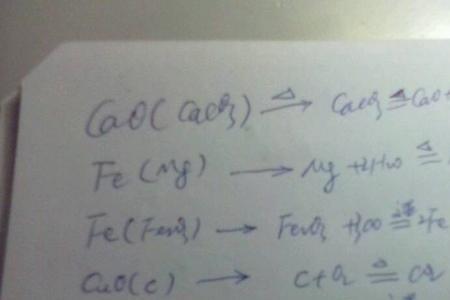 CaO(CaCO₃) △→ CaCO₃ ≜ CaO+
Fe(Mg) → Mg + ≜
Fe(Fe₂O₃) → Fe₂O₃ +3CO 高温= 2Fe
CuO(C) → C+O₂ ≜ CO₂